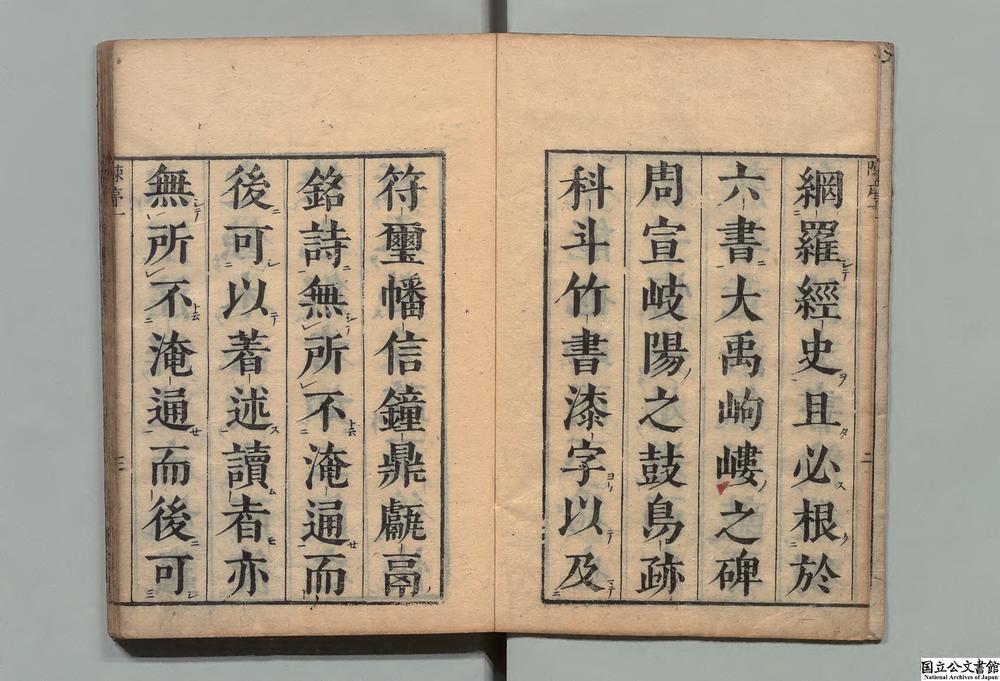 網羅經史且必根於
六書大禹岣嶁之碑
周宣岐陽之鼓鳥跡
科斗竹書漆字以及
符璽幡信鐘鼎甗鬲
銘詩無所不淹通而
後可以著述讀者亦
無所不淹通而後可
二
三
国立公文書館
National Archives of Japan